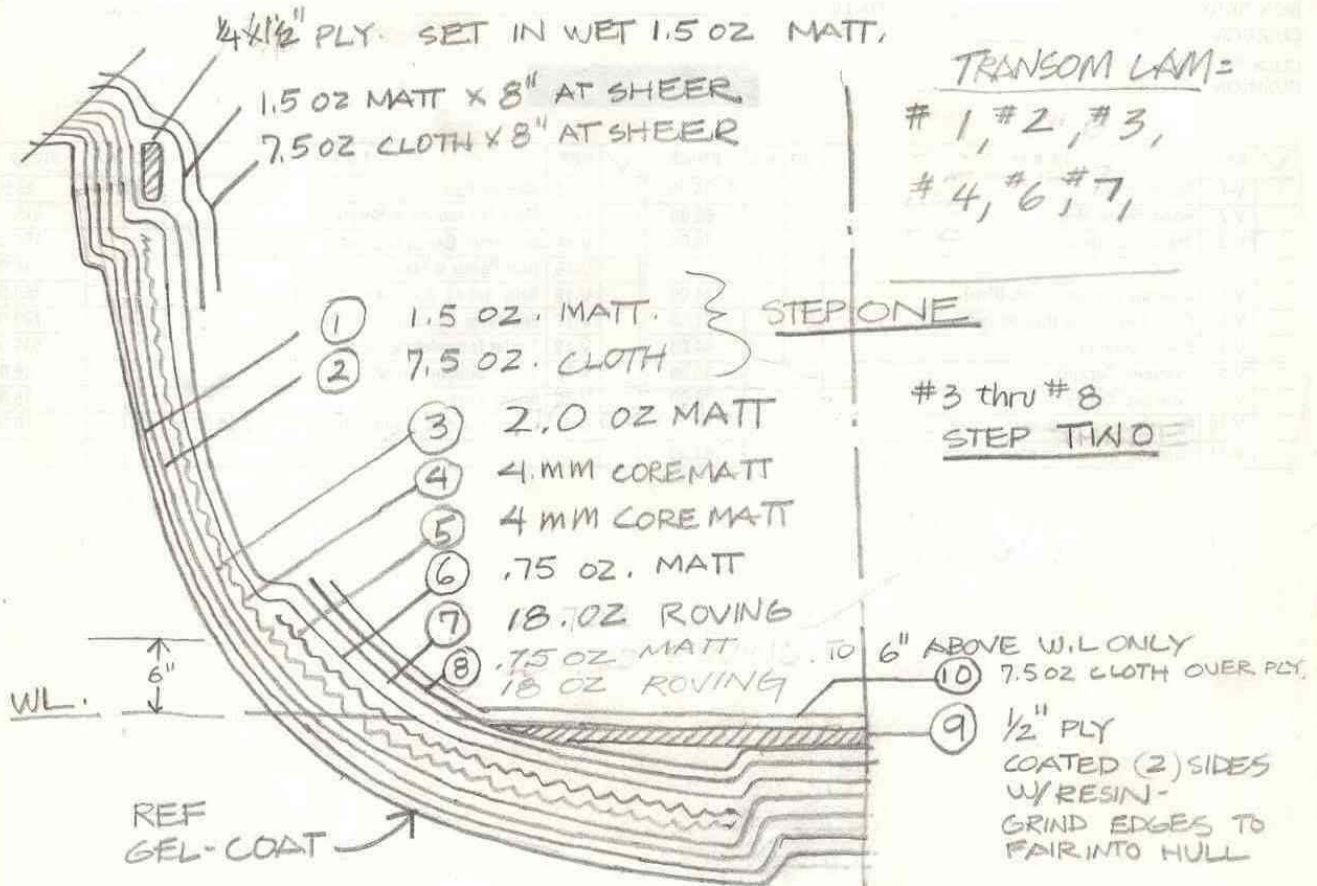 1/4 X 1 1/2" PLY. SET IN WET 1.5 OZ MATT.
1.5 OZ MATT X 8" AT SHEER
7.5 OZ CLOTH X 8" AT SHEER
TRANSOM LAM=
# 1, #2, #3,
#4, #6, #7,
① 1.5 OZ. MATT.
② 7.5 OZ. CLOTH
STEP ONE
③ 2.0 OZ MATT
④ 4.MM COREMATT
⑤ 4 MM CORE MATT
⑥ .75 OZ. MATT
⑦ 18.OZ ROVING
⑧ .75 OZ MATT TO 6" ABOVE W.L ONLY
18 OZ ROVING
#3 thru #8
STEP TWO
⑩ 7.5 OZ CLOTH OVER PLY.
⑨ 1/2" PLY
COATED (2) SIDES
W/ RESIN-
GRIND EDGES TO
FAIR INTO HULL
6"
WL.
REF
GEL-COAT